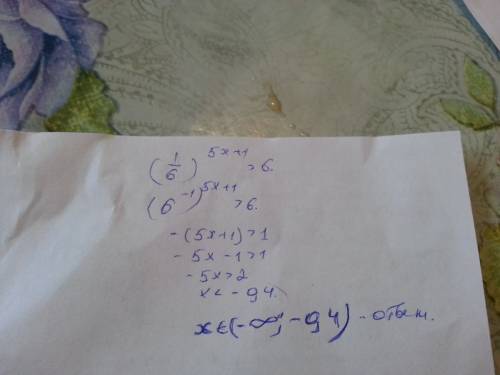 (1/6)^5x+1 > 6.
(6^-1)^5x+1 > 6.
-(5x+1) > 1
-5x - 1 > 1
-5x > 2
x < -0,4.
x ∈ (-∞; -0,4) - ответ.